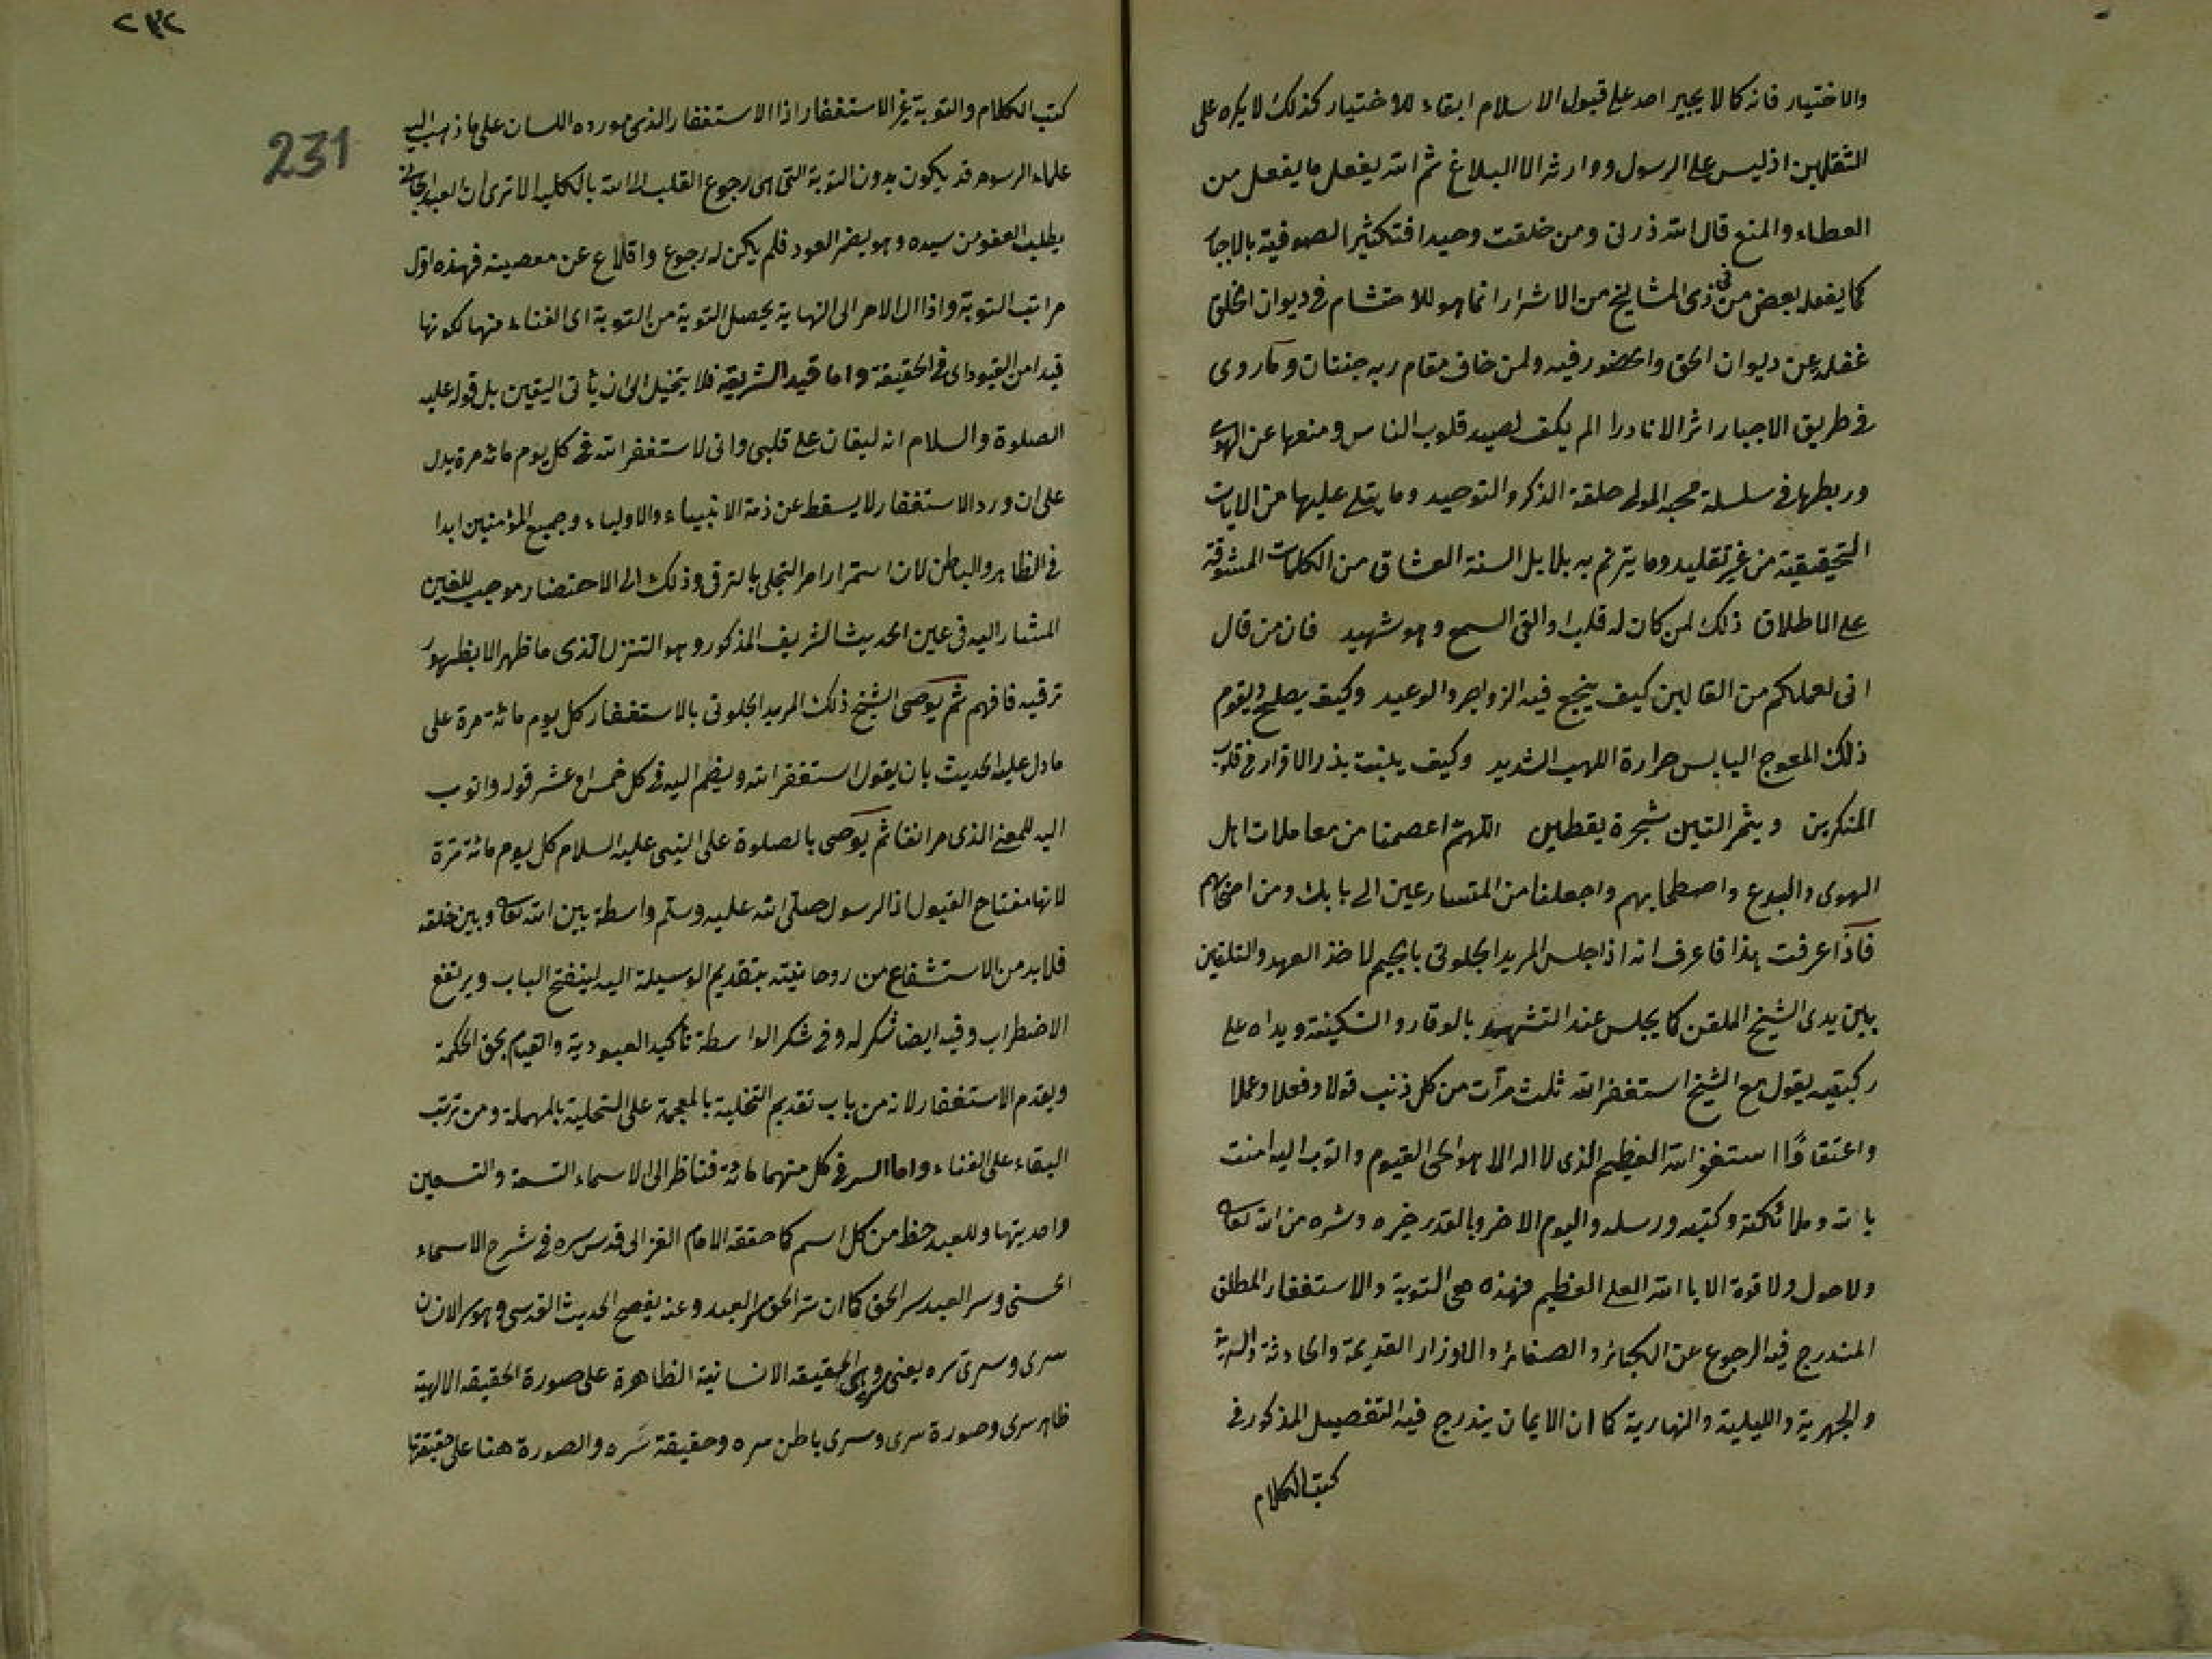 والاختيار فانه كما لا يجبر احد على قبول الاسلام ابقاء للاختيار كذلك لا يكره على
الثقلين اذ ليس على الرسول ووارثه الا البلاغ ثم الله يفعل ما يفعل من
العطاء والمنع قال الله ذرنى ومن خلقت وحيدا فتكثير الصوفية بالاجبار
كما يفعله بعض من فى زى المشايخ من الاشرار انما هو للاحتشام فى ديوان الخلق
غفلة عن ديوان الحق والحضور فيه ولمن خاف مقام ربه جنتان وما روى
فى طريق الاجبار اثر الا نادرا الم يكف لصيد قلوب الناس ومنعها عن الهوى
وربطها فى سلسلة محبة المولى حلقة الذكر والتوحيد وما يتلى عليها من الايات
التحقيقية من غير تقليد وما يترنم به بلابل السنة العشاق من الكلمات المشوقة
على الاطلاق ذلك لمن كان له قلب او القى السمع وهو شهيد فان من قال
انى لعملكم من القالين كيف ينجع فيه الزواجر والوعيد وكيف يصلح ويقوم
ذلك المعوج اليابس حرارة اللهب الشديد وكيف ينبت بذر الاقرار فى قلوب
المنكرين ويثمر التين شجرة يقطين اللهم اعصمنا من معاملات اهل
الهوى والبدع واصطحابهم واجعلنا من المتسارعين الى بابك ومن
فاذا عرفت هذا فاعرف انه اذا جلس المريد الجلوتى بالجيم لاخذ العهد والتلقين
بين يدى الشيخ الملقن كما يجلس عند التشهد بالوقار والسكينة ويداه على
ركبتيه يقول مع الشيخ استغفر الله ثلث مرات من كل ذنب قولا وفعلا وعملا
واعتقادا استغفر الله العظيم الذى لا اله الا هو الحى القيوم واتوب اليه امنت
بالله وملائكته وكتبه ورسله واليوم الاخر وبالقدر خيره وشره من الله تعالى
ولا حول ولا قوة الا بالله العلى العظيم فهذه هى التوبة والاستغفار المطلق
المندرج فيه الرجوع عن الكبائر والصغائر والاوزار القديمة والحادثة والسرية
والجهرية والليلية والنهارية كما ان الايمان يندرج فيه التفصيل المذكور فى
كتب الكلام
٢٣٢
231
كتب الكلام والتوبة غير الاستغفار اذا الاستغفار الذى مورده اللسان على ما ذهب اليه
علماء الرسوم قد يكون بدون التوبة التى هى رجوع القلب الى الله بالكلية الا ترى ان العبد
يطلب العفو من سيده وهو يضمر العود فلم يكن له رجوع واقلاع عن معصيته فهذه اول
مراتب التوبة واذا ال الامر الى النهاية يحصل التوبة من التوبة اى الفناء منها لكونها
قيدا من القيود اى فى الحقيقة واما قيد الشريقة فلا يتخيل الى ان يأتى اليقين بل قوله عليه
الصلوة والسلام انه ليغان على قلبى وانى لاستغفر الله فى كل يوم مائة مرة يدل
على ان ورد الاستغفار لا يسقط عن ذمة الانبياء والاولياء وجميع المؤمنين ابدا
فى الظاهر والباطن لان استمرار امر التجلى بالترقى وذلك الى الاحتضار موجب للغين
المشار اليه فى عين الحديث الشريف المذكور وهو التنزل الذى ما ظهر الا بظهور
ترقيه فافهم ثم يوصى الشيخ ذلك المريد الجلوتى بالاستغفار كل يوم مائة مرة على
ما دل عليه الحديث بان يقول استغفر الله ويضم اليه فى كل خمس او عشر قوله واتوب
اليه للمعنى الذى مر انفا ثم يوصى بالصلوة على النبى عليه السلام كل يوم مائة مرة
لانها مفتاح القبول اذ الرسول صلى الله عليه وسلم واسطة بين الله تعالى وبين خلقه
فلا بد من الاستشفاع من روحانيته بتقديم الوسيلة اليه لينفتح الباب ويرتفع
الاضطراب وفيه ايضا شكر له وفى شكر الواسطة تأكيد العبودية والقيام بحق الحكمة
ويقدم الاستغفار لانه من باب تقديم التخلية بالمعجمة على التحلية بالمهملة ومن ترتب
البقاء على الفناء واما السر فى كل منهما مائة فناظر الى الاسماء التسعة والتسعين
واحديتها وللعبد حظ من كل اسم كما حققه الامام الغزالى قدس سره فى شرح الاسماء
الحسنى وسر العبد سر الحق كما ان سر الحق سر العبد وعنه يفصح الحديث القدسى وهو الانسان
سرى وسرى سره يعنى الحقيقة الانسانية الظاهرة على صورة الحقيقة الالهية
ظاهر سرى وصورة سرى وسرى باطن سره وحقيقة سره والصورة هنا على حقيقتها